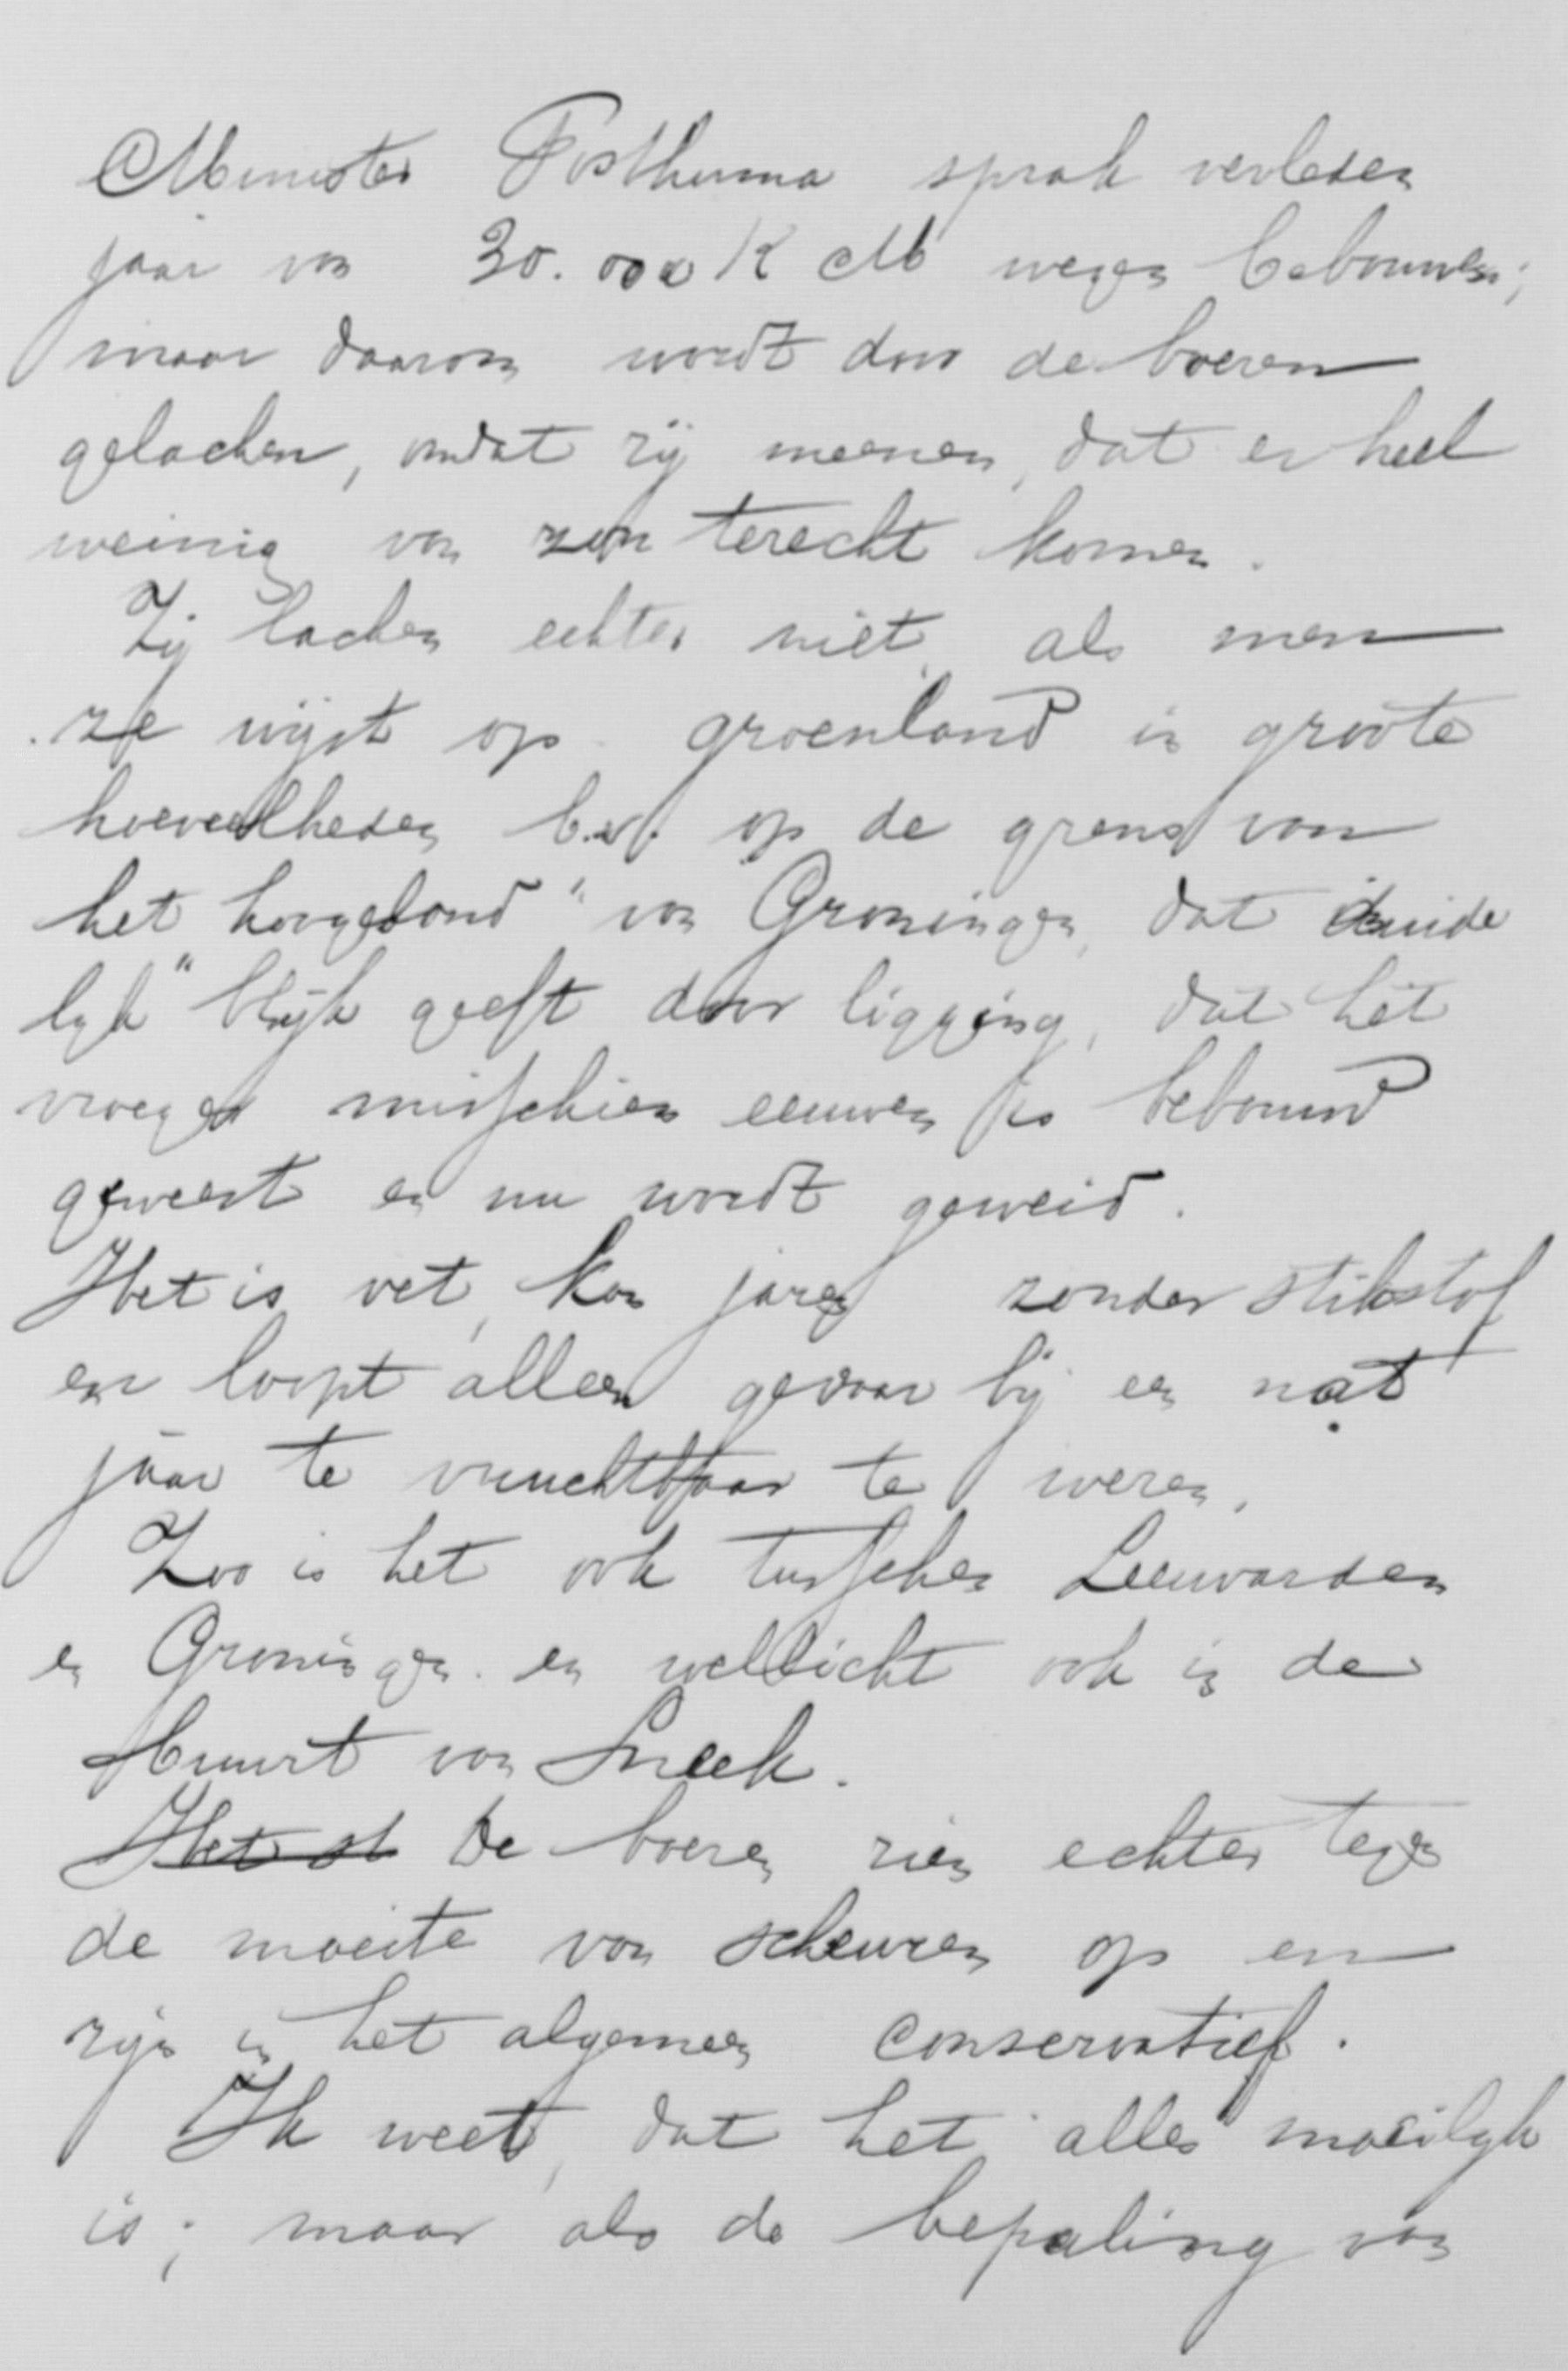 Minister Posthuma sprak verleden
jaar van 30.000 K M wegen bebouwen;
maar daarom wordt door de boeren
gelachen, omdat zij meenen, dat er heel
weinig van zou terecht komen.
Zij lachen echter niet, als men
ze wijst op groenland in groote
hoeveelheden b.v. op de grens van
het hoogeland" van Groningen, dat duide
lyk" blijk geeft door ligging, dat het
vroeger misschien eeuwen is bebouwd
geweest en nu wordt geweid.
Het is vet, kan jaren zonder stikstof
en loopt alleen gevaar bij een nat
jaar te vruchtbaar te weren.
Zoo is het ook tusschen Leeuwarden
en Groningen en wellicht ook in de
buurt van Sneek.
Het st De boeren zien echter tegen
de moeite van scheuren op en
zijn in het algemeen conservatief.
Ik weet, dat het alles moeilyk
is; maar als de bepaling van